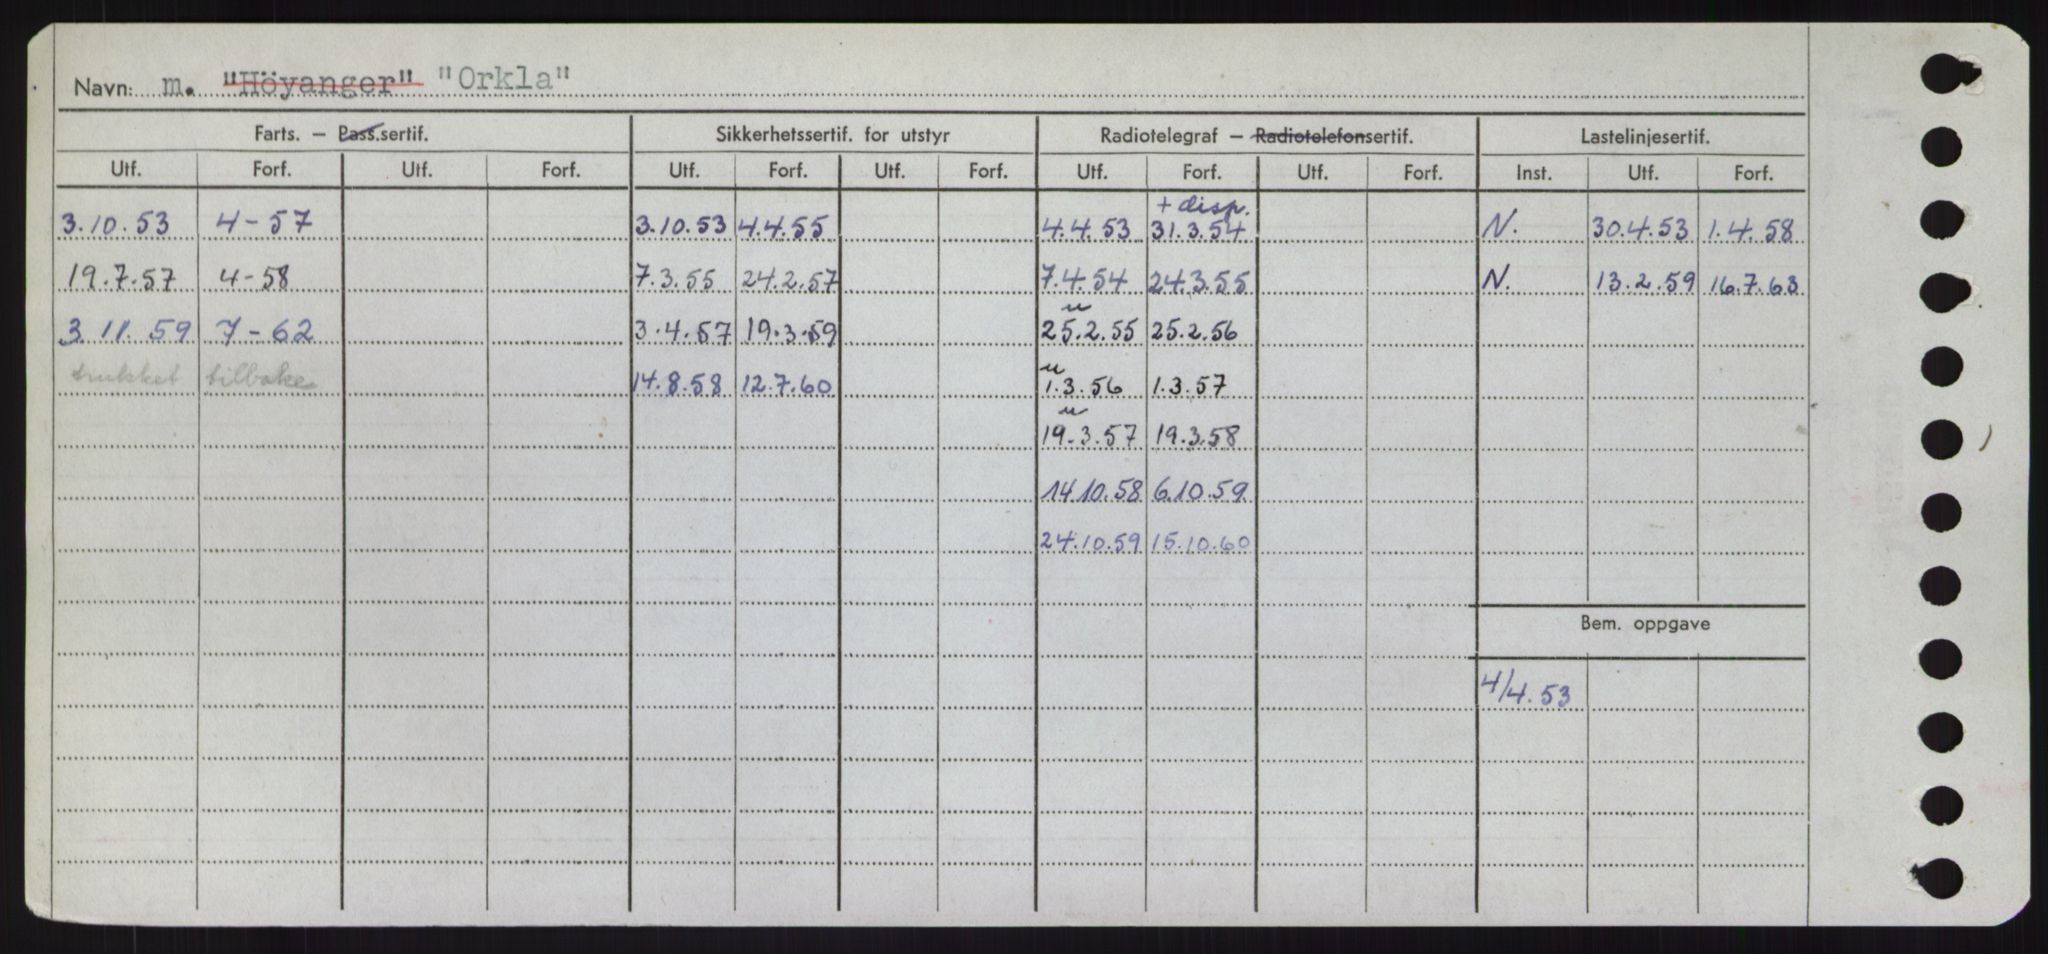 Navn: m. "Höyanger" "Orkla"
Farts. — Pass.sertif. Sikkerhetssertif. for utstyr Radiotelegraf — Radiotelefonsertif. Lastelinjesertif.
Utf. Forf. Utf. Forf. Utf. Forf. Utf. Forf. Utf. Forf. Utf. Forf. Inst. Utf. Forf.
+ disp.
3.10.53 4-57 3.10.53 4.4.55 4.4.53 31.3.54 N. 30.4.53 1.4.58
19.7.57 4-58 7.3.55 24.2.57 7.4.54 24.3.55 N. 13.2.59 16.7.63
u
3.11.59 7-62 3.4.57 19.3.59 25.2.55 25.2.56
u
trukket tilbake 14.8.58 12.7.60 1.3.56 1.3.57
u
19.3.57 19.3.58
14.10.58 6.10.59
24.10.59 15.10.60
Bem. oppgave
4/4.53